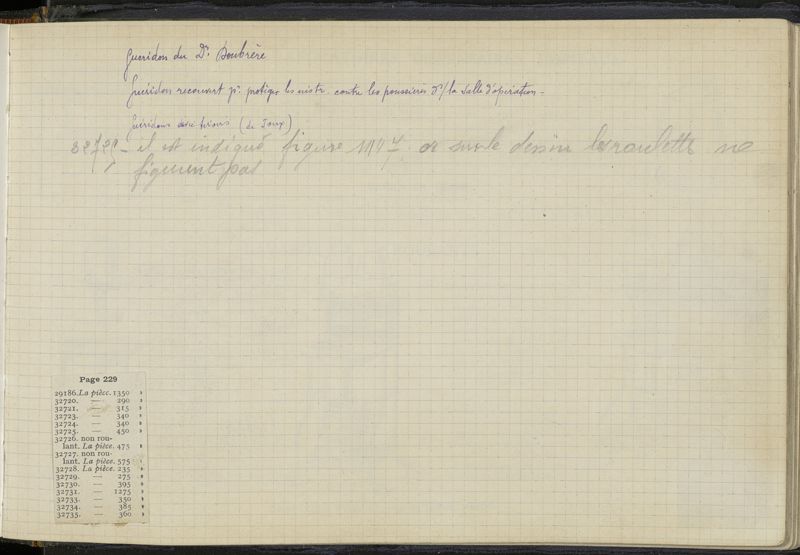 Gueridon du Dr. Doubrère
Guéridon recouvert pr. protéger les instr. contre les poussières ds/la salle d'opération -
Guéridons avec tiroirs (de Joux)
32729 - il est indiqué figure 11147 or sur le dessin les roulette ne
figurent pas
Page 229
29186. La pièce. 1350 »
32720. — 290 »
32721. — 315 »
32723. — 340 »
32724. — 340 »
32725. — 450 »
32726. non rou-
lant. La pièce. 475 »
32727. non rou-
lant. La pièce. 575 »
32728. La pièce. 235 »
32729. — 275 »
32730. — 395 »
32731. — 1275 »
32733. — 350 »
32734. — 385 »
32735. — 360 »